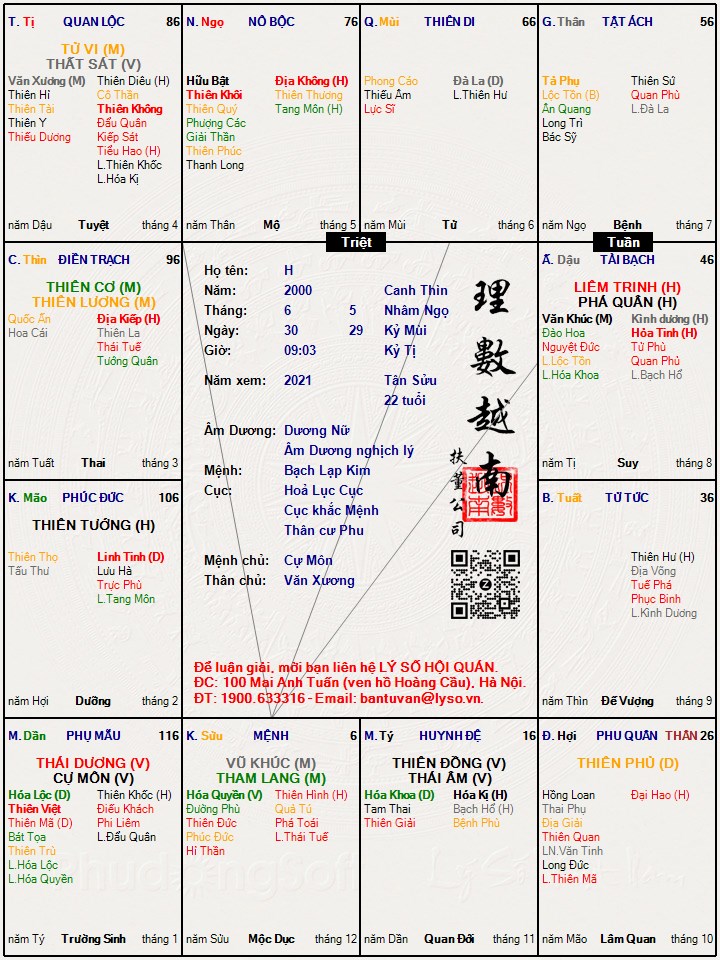 T. Tị QUAN LỘC 86
TỬ VI (M)
THẤT SÁT (V)
Văn Xương (M) Thiên Diêu (H)
Thiên Hỉ Cô Thần
Thiên Tài Thiên Không
Thiên Y Đẩu Quân
Thiếu Dương Kiếp Sát
Tiểu Hao (H)
L.Thiên Khốc
L.Hóa Kị
năm Dậu Tuyệt tháng 4
N. Ngọ NÔ BỘC 76
Hữu Bật Địa Không (H)
Thiên Khôi Thiên Thương
Thiên Quý Tang Môn (H)
Phượng Các
Giải Thần
Thiên Phúc
Thanh Long
năm Thân Mộ tháng 5
Q. Mùi THIÊN DI 66
Phong Cáo Đà La (D)
Thiếu Âm L.Thiên Hư
Lực Sĩ
năm Mùi Tử tháng 6
G. Thân TẬT ÁCH 56
Tả Phụ Thiên Sứ
Lộc Tồn (B) Quan Phù
Ân Quang L.Đà La
Long Trì
Bác Sỹ
năm Ngọ Bệnh tháng 7
Triệt
Tuần
C. Thìn ĐIỀN TRẠCH 96
THIÊN CƠ (M)
THIÊN LƯƠNG (M)
Quốc Ấn Địa Kiếp (H)
Hoa Cái Thiên La
Thái Tuế
Tướng Quân
năm Tuất Thai tháng 3
Họ tên: H
Năm: 2000 Canh Thìn
Tháng: 6 5 Nhâm Ngọ
Ngày: 30 29 Kỷ Mùi
Giờ: 09:03 Kỷ Tị
Năm xem: 2021 Tân Sửu
22 tuổi
Âm Dương: Dương Nữ
Âm Dương nghịch lý
Mệnh: Bạch Lạp Kim
Cục: Hoả Lục Cục
Cục khắc Mệnh
Thân cư Phu
Mệnh chủ: Cự Môn
Thân chủ: Văn Xương
理
數
越
南
扶
董
公
司
Để luận giải, mời bạn liên hệ LÝ SỐ HỘI QUÁN.
ĐC: 100 Mai Anh Tuấn (ven hồ Hoàng Cầu), Hà Nội.
ĐT: 1900.633316 - Email: bantuvan@lyso.vn.
Ấ. Dậu TÀI BẠCH 46
LIÊM TRINH (H)
PHÁ QUÂN (H)
Văn Khúc (M) Kình dương (H)
Đào Hoa Hỏa Tinh (H)
Nguyệt Đức Tử Phù
L.Lộc Tồn Quan Phủ
L.Hóa Khoa L.Bạch Hổ
năm Tị Suy tháng 8
K. Mão PHÚC ĐỨC 106
THIÊN TƯỚNG (H)
Thiên Thọ Linh Tinh (D)
Tấu Thư Lưu Hà
Trực Phù
L.Tang Môn
năm Hợi Dưỡng tháng 2
B. Tuất TỬ TỨC 36
Thiên Hư (H)
Địa Võng
Tuế Phá
Phục Binh
L.Kình Dương
năm Thìn Đế Vượng tháng 9
M. Dần PHỤ MẪU 116
THÁI DƯƠNG (V)
CỰ MÔN (V)
Hóa Lộc (D) Thiên Khốc (H)
Thiên Việt Điếu Khách
Thiên Mã (D) Phi Liêm
Bát Tọa L.Đẩu Quân
Thiên Trù
L.Hóa Lộc
L.Hóa Quyền
năm Tý Trường Sinh tháng 1
K. Sửu MỆNH 6
VŨ KHÚC (M)
THAM LANG (M)
Hóa Quyền (V) Thiên Hình (H)
Đường Phù Quả Tú
Thiên Đức Phá Toái
Phúc Đức L.Thái Tuế
Hỉ Thần
năm Sửu Mộc Dục tháng 12
M. Tý HUYNH ĐỆ 16
THIÊN ĐỒNG (V)
THÁI ÂM (V)
Hóa Khoa (D) Hóa Kị (H)
Tam Thai Bạch Hổ (H)
Thiên Giải Bệnh Phù
năm Dần Quan Đới tháng 11
Đ. Hợi PHU QUÂN THÂN 26
THIÊN PHỦ (D)
Hồng Loan Đại Hao (H)
Thai Phụ
Địa Giải
Thiên Quan
LN.Văn Tinh
Long Đức
L.Thiên Mã
năm Mão Lâm Quan tháng 10